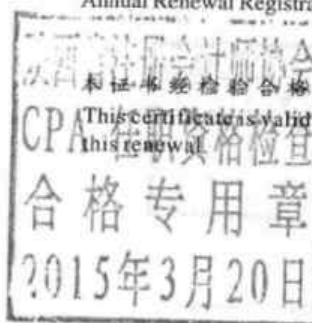 Annual Renewal Registra
陕西省注册会计师协会
本证书经检验合格
This certificate is valid
this renewal.
CPA 任职资格检查
合格专用章
2015年3月20日